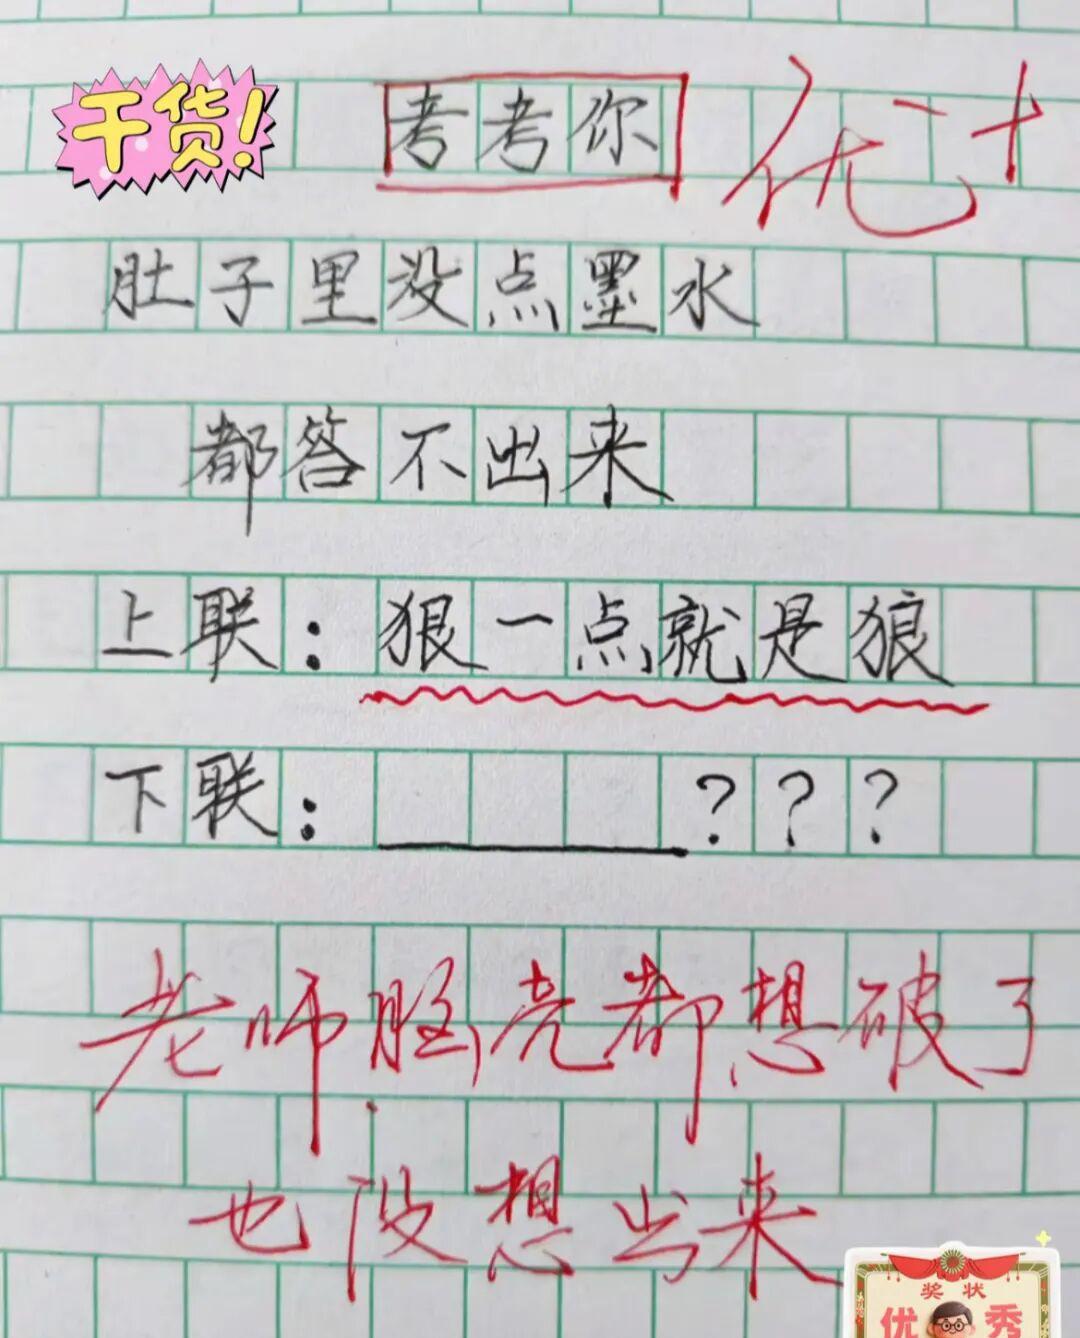 干货!
考考你
优+
肚子里没点墨水
都答不出来
上联:狠一点就是狼
下联:______???
老师脑壳都想破了
也没想出来
奖状
优秀